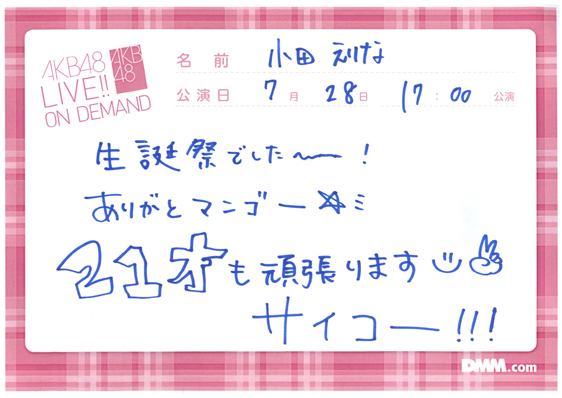 AKB48
LIVE!!
ON DEMAND
AKB
48
名前 小田えりな
公演日 7月 28日 17:00 公演
生誕祭でした〜!
ありがとマンゴー☆ミ
21才も頑張ります
サイコー!!!
DMM.com